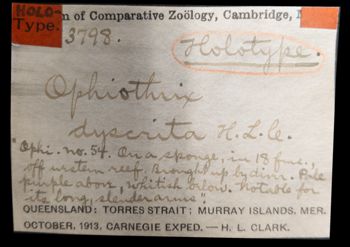 HOLO-
Type.
m of Comparative Zoölogy, Cambridge,
3798.
Holotype.
Ophiothrix
dyscrita H. L. C.
Ophi. no. 54. On a sponge, in 18 fms.,
off western reef. Brought up by diver. Pale
purple above, whitish below. Notable for
its long, slender arms.
QUEENSLAND: TORRES STRAIT; MURRAY ISLANDS. MER.
OCTOBER, 1913, CARNEGIE EXPED. — H. L. CLARK.